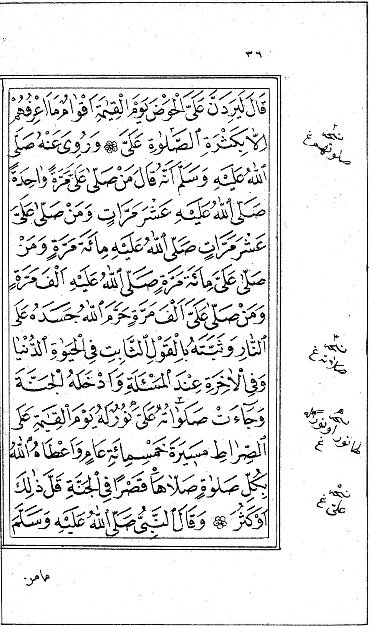 ٣٦
قَالَ لَيَرِدَنَّ عَلَيَّ الْحَوْضَ يَوْمَ الْقِيٰمَةِ اَقْوَامٌ مَا اَعْرِفُهُمْ
اِلَّا بِكَثْرَةِ الصَّلٰوةِ عَلَيَّ ۞ وَرُوِيَ عَنْهُ صَلَّى
اللهُ عَلَيْهِ وَسَلَّمَ اَنَّهُ قَالَ مَنْ صَلّٰى عَلَيَّ مَرَّةً وَاحِدَةً
صَلَّى اللهُ عَلَيْهِ عَشْرَ مَرَّاتٍ وَمَنْ صَلّٰى عَلَيَّ
عَشْرَ مَرَّاتٍ صَلَّى اللهُ عَلَيْهِ مِائَةَ مَرَّةٍ وَمَنْ
صَلّٰى عَلَيَّ مِائَةَ مَرَّةٍ صَلَّى اللهُ عَلَيْهِ اَلْفَ مَرَّةٍ
وَمَنْ صَلّٰى عَلَيَّ اَلْفَ مَرَّةٍ حَرَّمَ اللهُ جَسَدَهُ عَلَى
النَّارِ وَثَبَّتَهُ بِالْقَوْلِ الثَّابِتِ فِي الْحَيٰوةِ الدُّنْيَا
وَفِي الْاٰخِرَةِ عِنْدَ الْمَسْئَلَةِ وَاَدْخَلَهُ الْجَنَّةَ
وَجَاءَتْ صَلَوَاتُهُ عَلَيَّ نُوْرٌ لَهُ يَوْمَ الْقِيٰمَةِ عَلَى
الصِّرَاطِ مَسِيْرَةَ خَمْسِمِائَةِ عَامٍ وَاَعْطَاهُ اللهُ
بِكُلِّ صَلٰوةٍ صَلَّاهَا قَصْرًا فِي الْجَنَّةِ قَلَّ ذٰلِكَ
اَوْ كَثُرَ ۞ وَقَالَ النَّبِيُّ صَلَّى اللهُ عَلَيْهِ وَسَلَّمَ
مامن